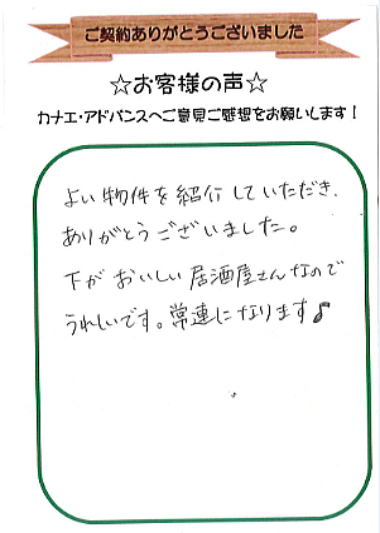 ご契約ありがとうございました
☆お客様の声☆
カナエ・アドバンスへご意見ご感想をお願いします！
よい物件を紹介していただき、
ありがとうございました。
下がおいしい居酒屋さんなので
うれしいです。常連になります♪